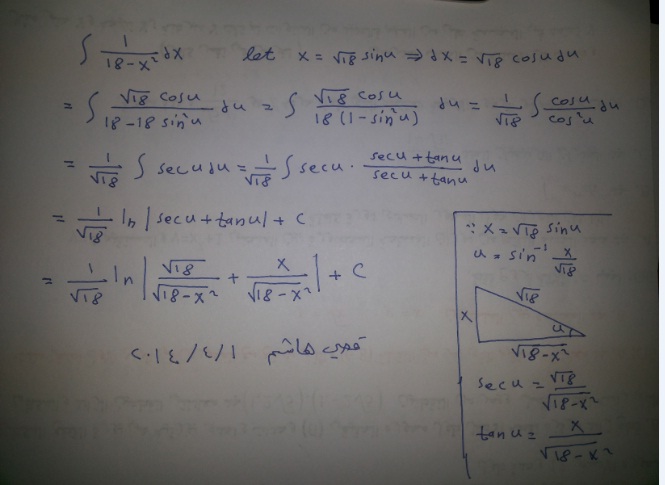 ∫ 1/(18-x²) dx let x = √18 sinu ⇒ dx = √18 cosu du
= ∫ (√18 cosu)/(18-18 sin²u) du = ∫ (√18 cosu)/(18(1-sin²u)) du = 1/√18 ∫ cosu/cos²u du
= 1/√18 ∫ secu du = 1/√18 ∫ secu · (secu+tanu)/(secu+tanu) du
= 1/√18 ln |secu+tanu| + c
= 1/√18 ln | √18/√(18-x²) + x/√(18-x²) | + C
قصي هاشم ١/٤/٢٠١٤
∵ x = √18 sinu
u = sin⁻¹ x/√18
√18
x
u
√(18-x²)
secu = √18/√(18-x²)
tanu = x/√(18-x²)